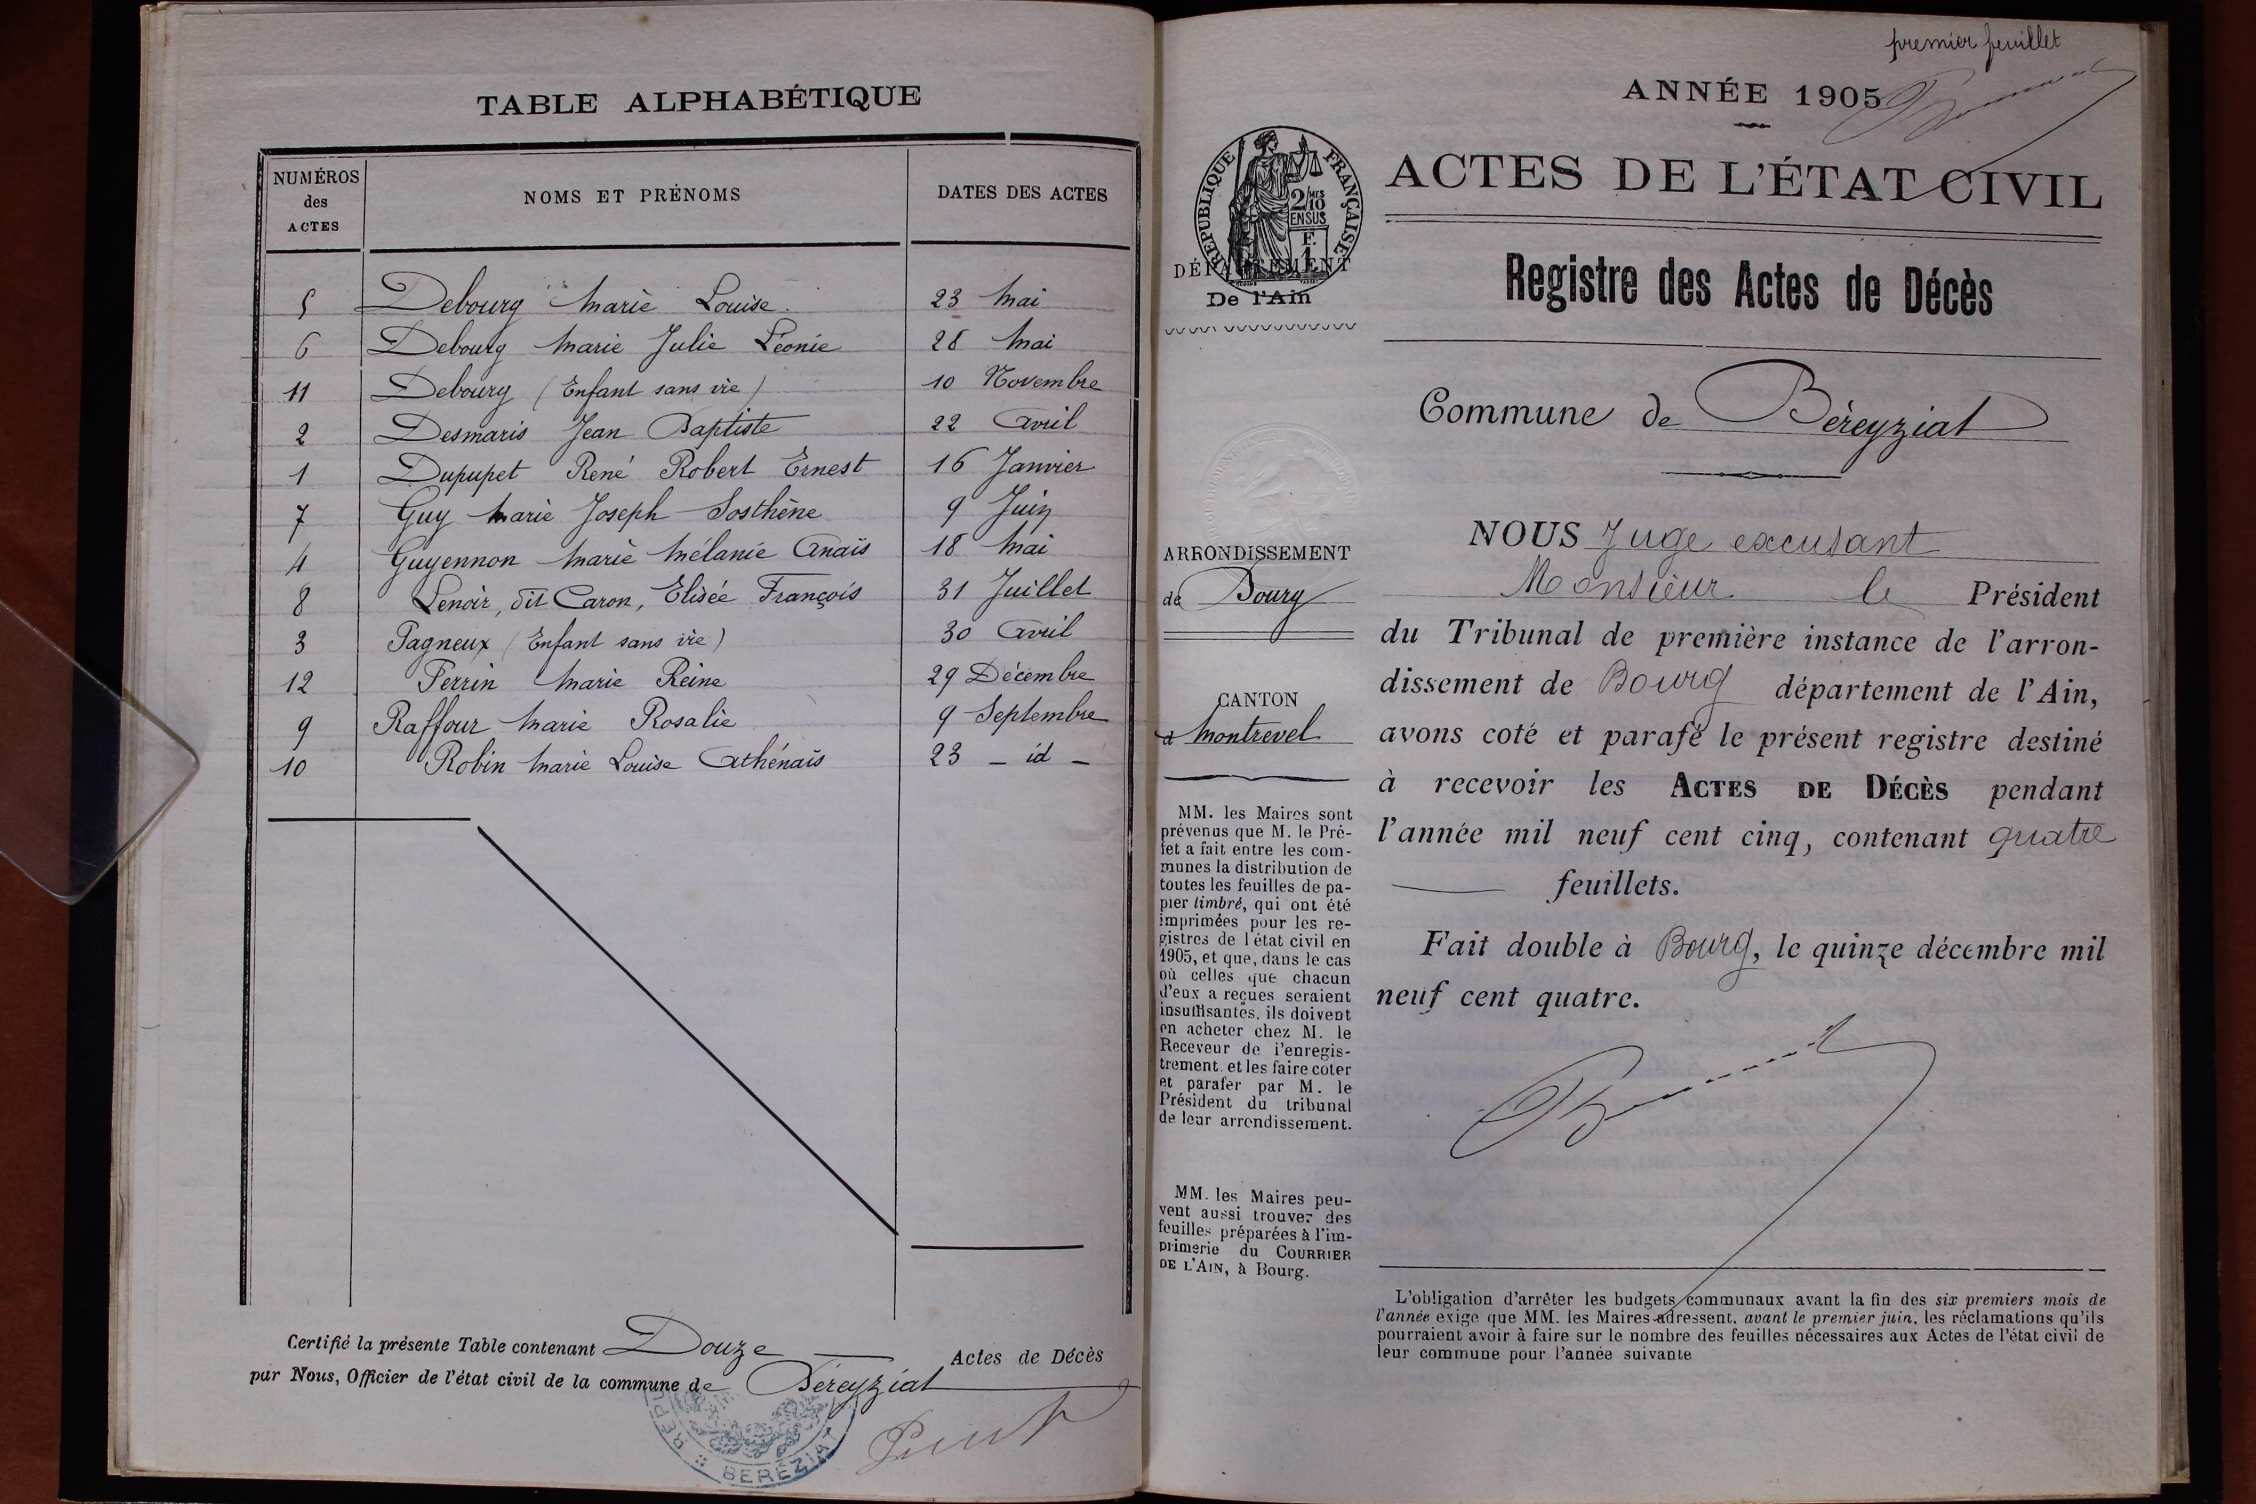 TABLE ALPHABÉTIQUE
NUMÉROS des ACTES NOMS ET PRÉNOMS DATES DES ACTES
5 Debourg Marie Louise 23 Mai
6 Debourg Marie Julie Léonie 28 Mai
11 Debourg (Enfant sans vie) 10 Novembre
2 Desmaris Jean Baptiste 22 Avril
1 Dupupet René Robert Ernest 16 Janvier
7 Guy Marie Joseph Sosthène 9 Juin
4 Guyennon Marie Mélanie Anaïs 18 Mai
8 Lenoir, dit Caron, Elisée François 31 Juillet
3 Pagneux (Enfant sans vie) 30 Avril
12 Perrin Marie Reine 29 Décembre
9 Raffour Marie Rosalie 9 Septembre
10 Robin Marie Louise Athénaïs 23 - id -
Certifié la présente Table contenant Douze Actes de Décès
par Nous, Officier de l'état civil de la commune de Béreyziat
BERÉZIAT
premier feuillet
ANNÉE 1905
ACTES DE L'ÉTAT CIVIL
RÉPUBLIQUE FRANÇAISE
2/10 MES
EN SUS
F.
1
DÉPARTEMENT
De l'Ain
Registre des Actes de Décès
Commune de Béreyziat
ARRONDISSEMENT
de Bourg
CANTON
d Montrevel
MM. les Maires sont
prévenus que M. le Pré-
fet a fait entre les com-
munes la distribution de
toutes les feuilles de pa-
pier timbré, qui ont été
imprimées pour les re-
gistres de l'état civil en
1905, et que, dans le cas
où celles que chacun
d'eux a reçues seraient
insuffisantes, ils doivent
en acheter chez M. le
Receveur de l'enregis-
trement. et les faire coter
et parafer par M. le
Président du tribunal
de leur arrondissement.
MM. les Maires peu-
vent aussi trouver des
feuilles préparées à l'im-
primerie du COURRIER
DE L'AIN, à Bourg.
NOUS Juge excusant
Monsieur le Président
du Tribunal de première instance de l'arron-
dissement de Bourg département de l'Ain,
avons coté et parafé le présent registre destiné
à recevoir les ACTES DE DÉCÈS pendant
l'année mil neuf cent cinq, contenant quatre
feuillets.
Fait double à Bourg, le quinze décembre mil
neuf cent quatre.
L'obligation d'arrêter les budgets communaux avant la fin des six premiers mois de
l'année exige que MM. les Maires adressent, avant le premier juin, les réclamations qu'ils
pourraient avoir à faire sur le nombre des feuilles nécessaires aux Actes de l'état civil de
leur commune pour l'année suivante